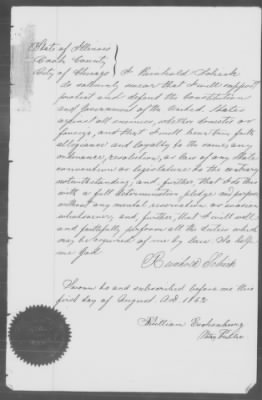 State of Illinois
Cook County
City of Chicago } I Reinhold Scheck
do solemnly swear that I will support
protect and defend the Constitution
and Government of the United States
against all enemies, whether domestic or
foreign, and that I will bear true faith
allegiance and loyalty to the same, any
ordinance, resolution, or law of any State
convention or legislature to the contrary
notwithstanding, and further that I do this
with a full determination, pledge and purpose
without any mental reservation or evasion
whatsoever, and, further, that I will well
and faithfully perform all the duties which
may be required of me by law. So help
me God
Reinhold Scheck
Sworn to and subscribed before me this
first day of August A.D. 1862
William
Notary Public